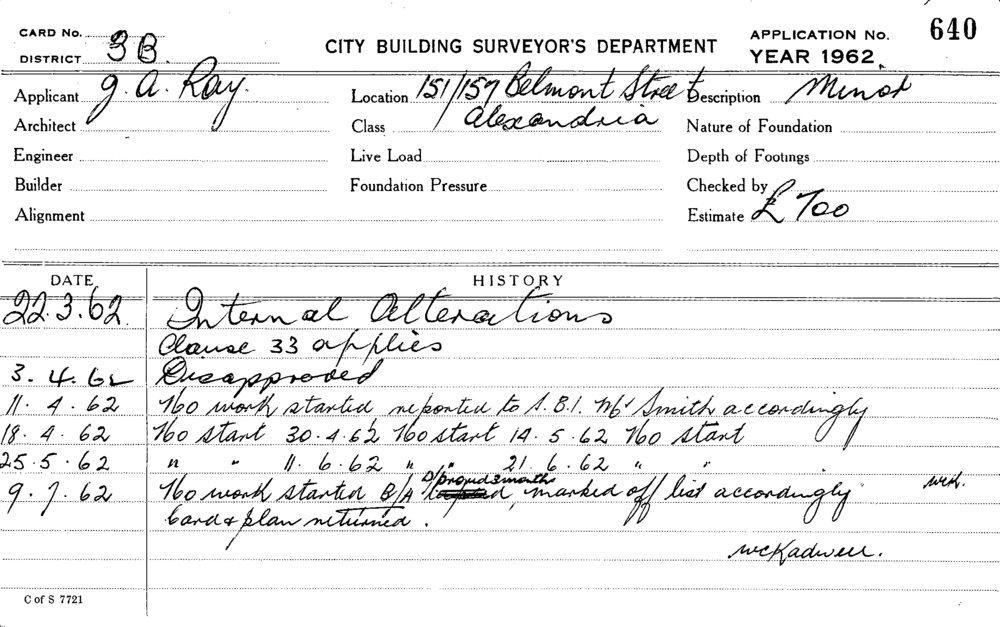 CARD No. 3B.
DISTRICT
CITY BUILDING SURVEYOR'S DEPARTMENT
APPLICATION No. 640
YEAR 1962
Applicant G. A. Ray.
Location 151/157 Belmont Street
Alexandria
Description Minor
Architect
Class
Nature of Foundation
Engineer
Live Load
Depth of Footings
Builder
Foundation Pressure
Checked by
Alignment
Estimate £ 700
DATE HISTORY
22.3.62. Internal Alterations
Clause 33 applies
3.4.62 Disapproved
11.4.62 No work started reported to S.B.I. Mr Smith accordingly
18.4.62 No start 30.4.62 No start 14.5.62 No start
25.5.62 " " 11.6.62 " " 21.6.62 " "
9.7.62 No work started B/A D/proved 3 months, marked off list accordingly wck.
Card & plan returned.
wckadwell.
C of S 7721